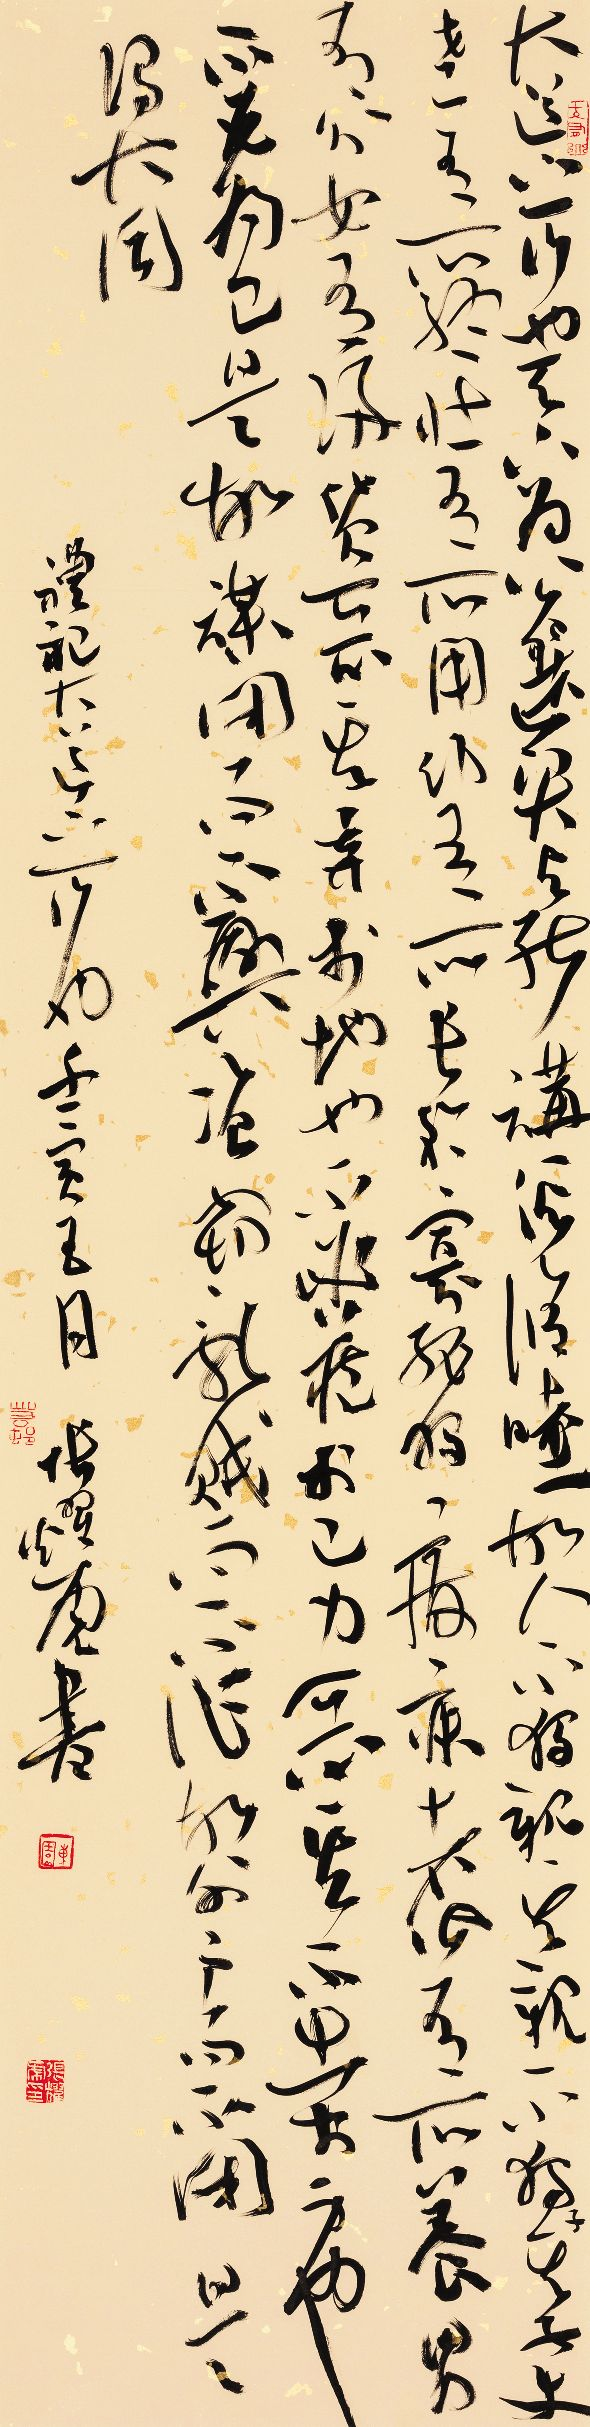 大道之行也天下為公選賢與能講信修睦故人不獨親其親不獨子其子使
老有所終壯有所用幼有所長矜寡孤獨廢疾者皆有所養男
有分女有歸貨惡其棄於地也不必藏於己力惡其不出於身也
不必為己是故謀閉而不興盜竊亂賊而不作故外戶而不閉是
謂大同
禮記大道之行也壬寅五月張耀書